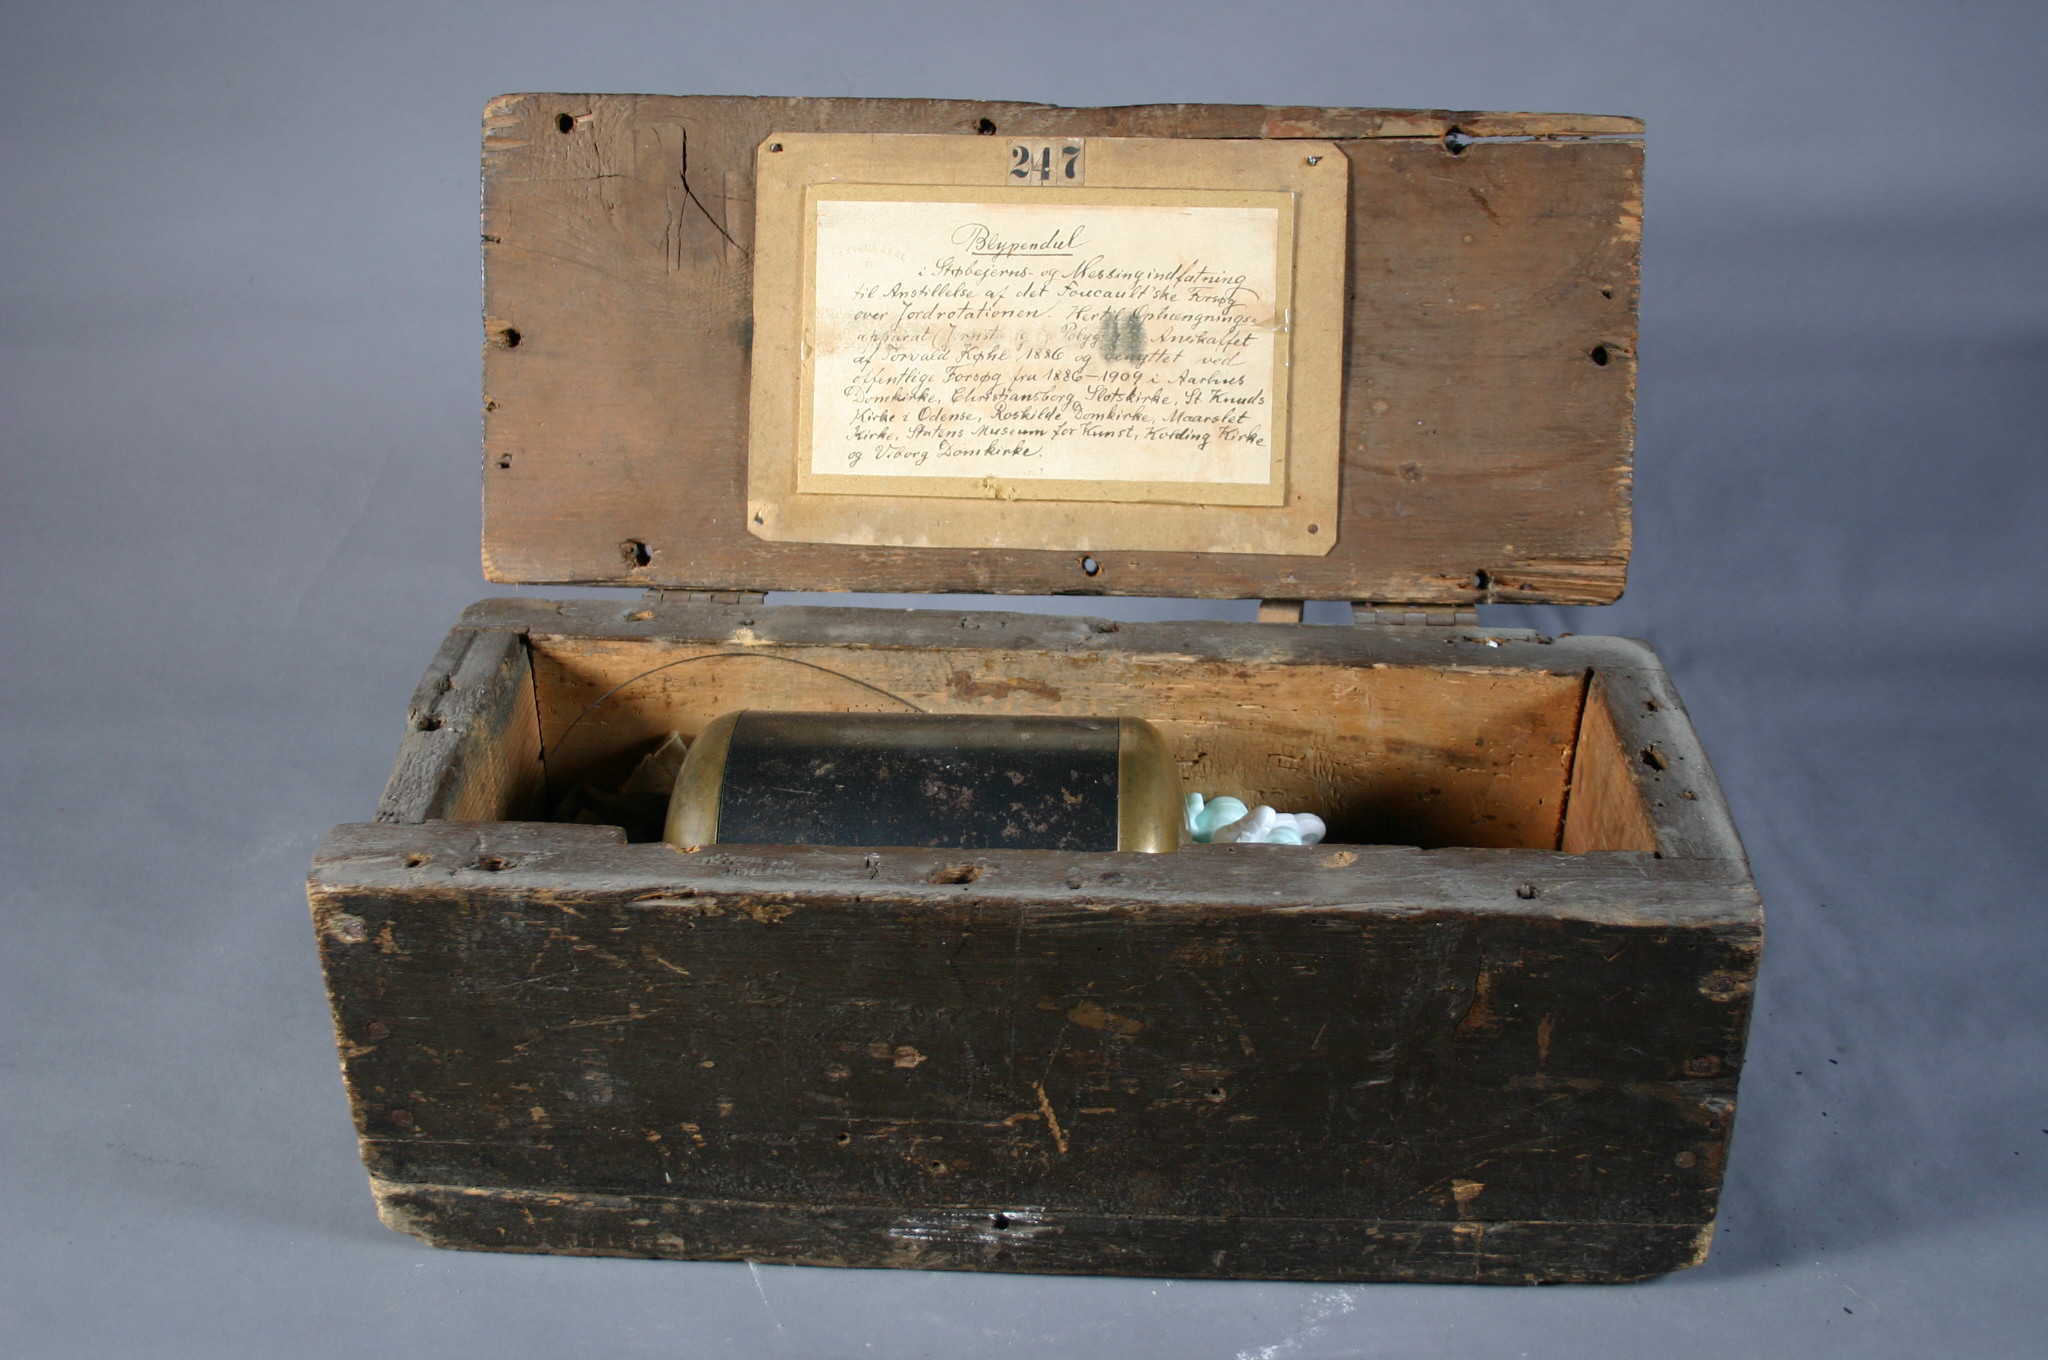 247
Blypendul
i Støbejerns- og Messingindfatning
til Anstillelse af det Foucault'ske Forsøg
over Jordrotationen. Hertil Ophængnings-
apparat Anskaffet
af Torvald Køhl 1886 og benyttet ved
offentlige Forsøg fra 1886-1909 i Aarhus
Domkirke, Christiansborg Slotskirke, St. Knuds
Kirke i Odense, Roskilde Domkirke, Maarslet
Kirke, Statens Museum for Kunst, Kolding Kirke
og Viborg Domkirke.